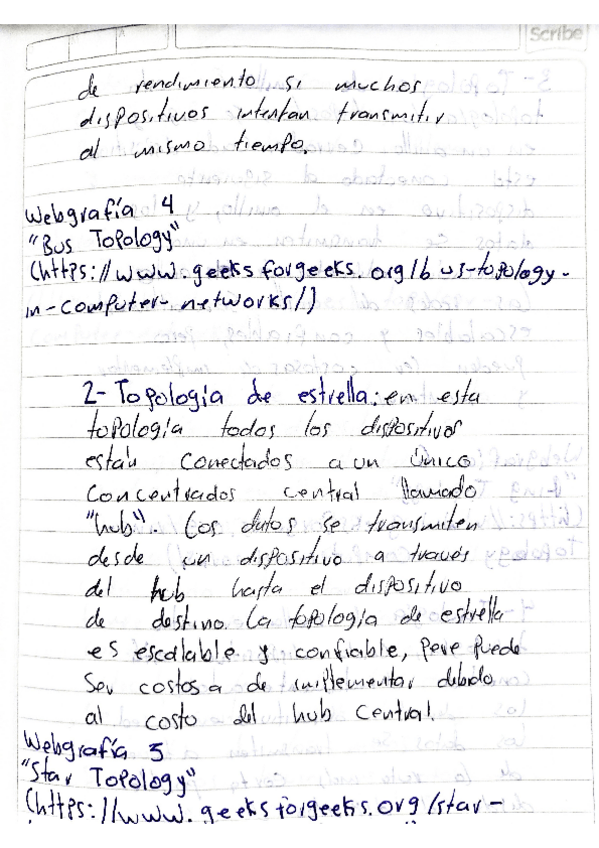 Scribe
de rendimiento si muchos
dispositivos intentan transmitir
al mismo tiempo.
Webgrafía 4
"Bus Topology"
(https://www.geeksforgeeks.org/bus-topology-
in-computer-networks/)
2- Topología de estrella: en esta
topología todos los dispositivos
están conectados a un único
concentrados central llamado
"hub". Los datos se transmiten
desde un dispositivo a través
del hub hasta el dispositivo
de destino. La topología de estrella
es escalable y confiable, pere puede
ser costosa de implementar debido
al costo del hub central.
Webgrafía 5
"Star Topology"
(https://www.geeksforgeeks.org/star-